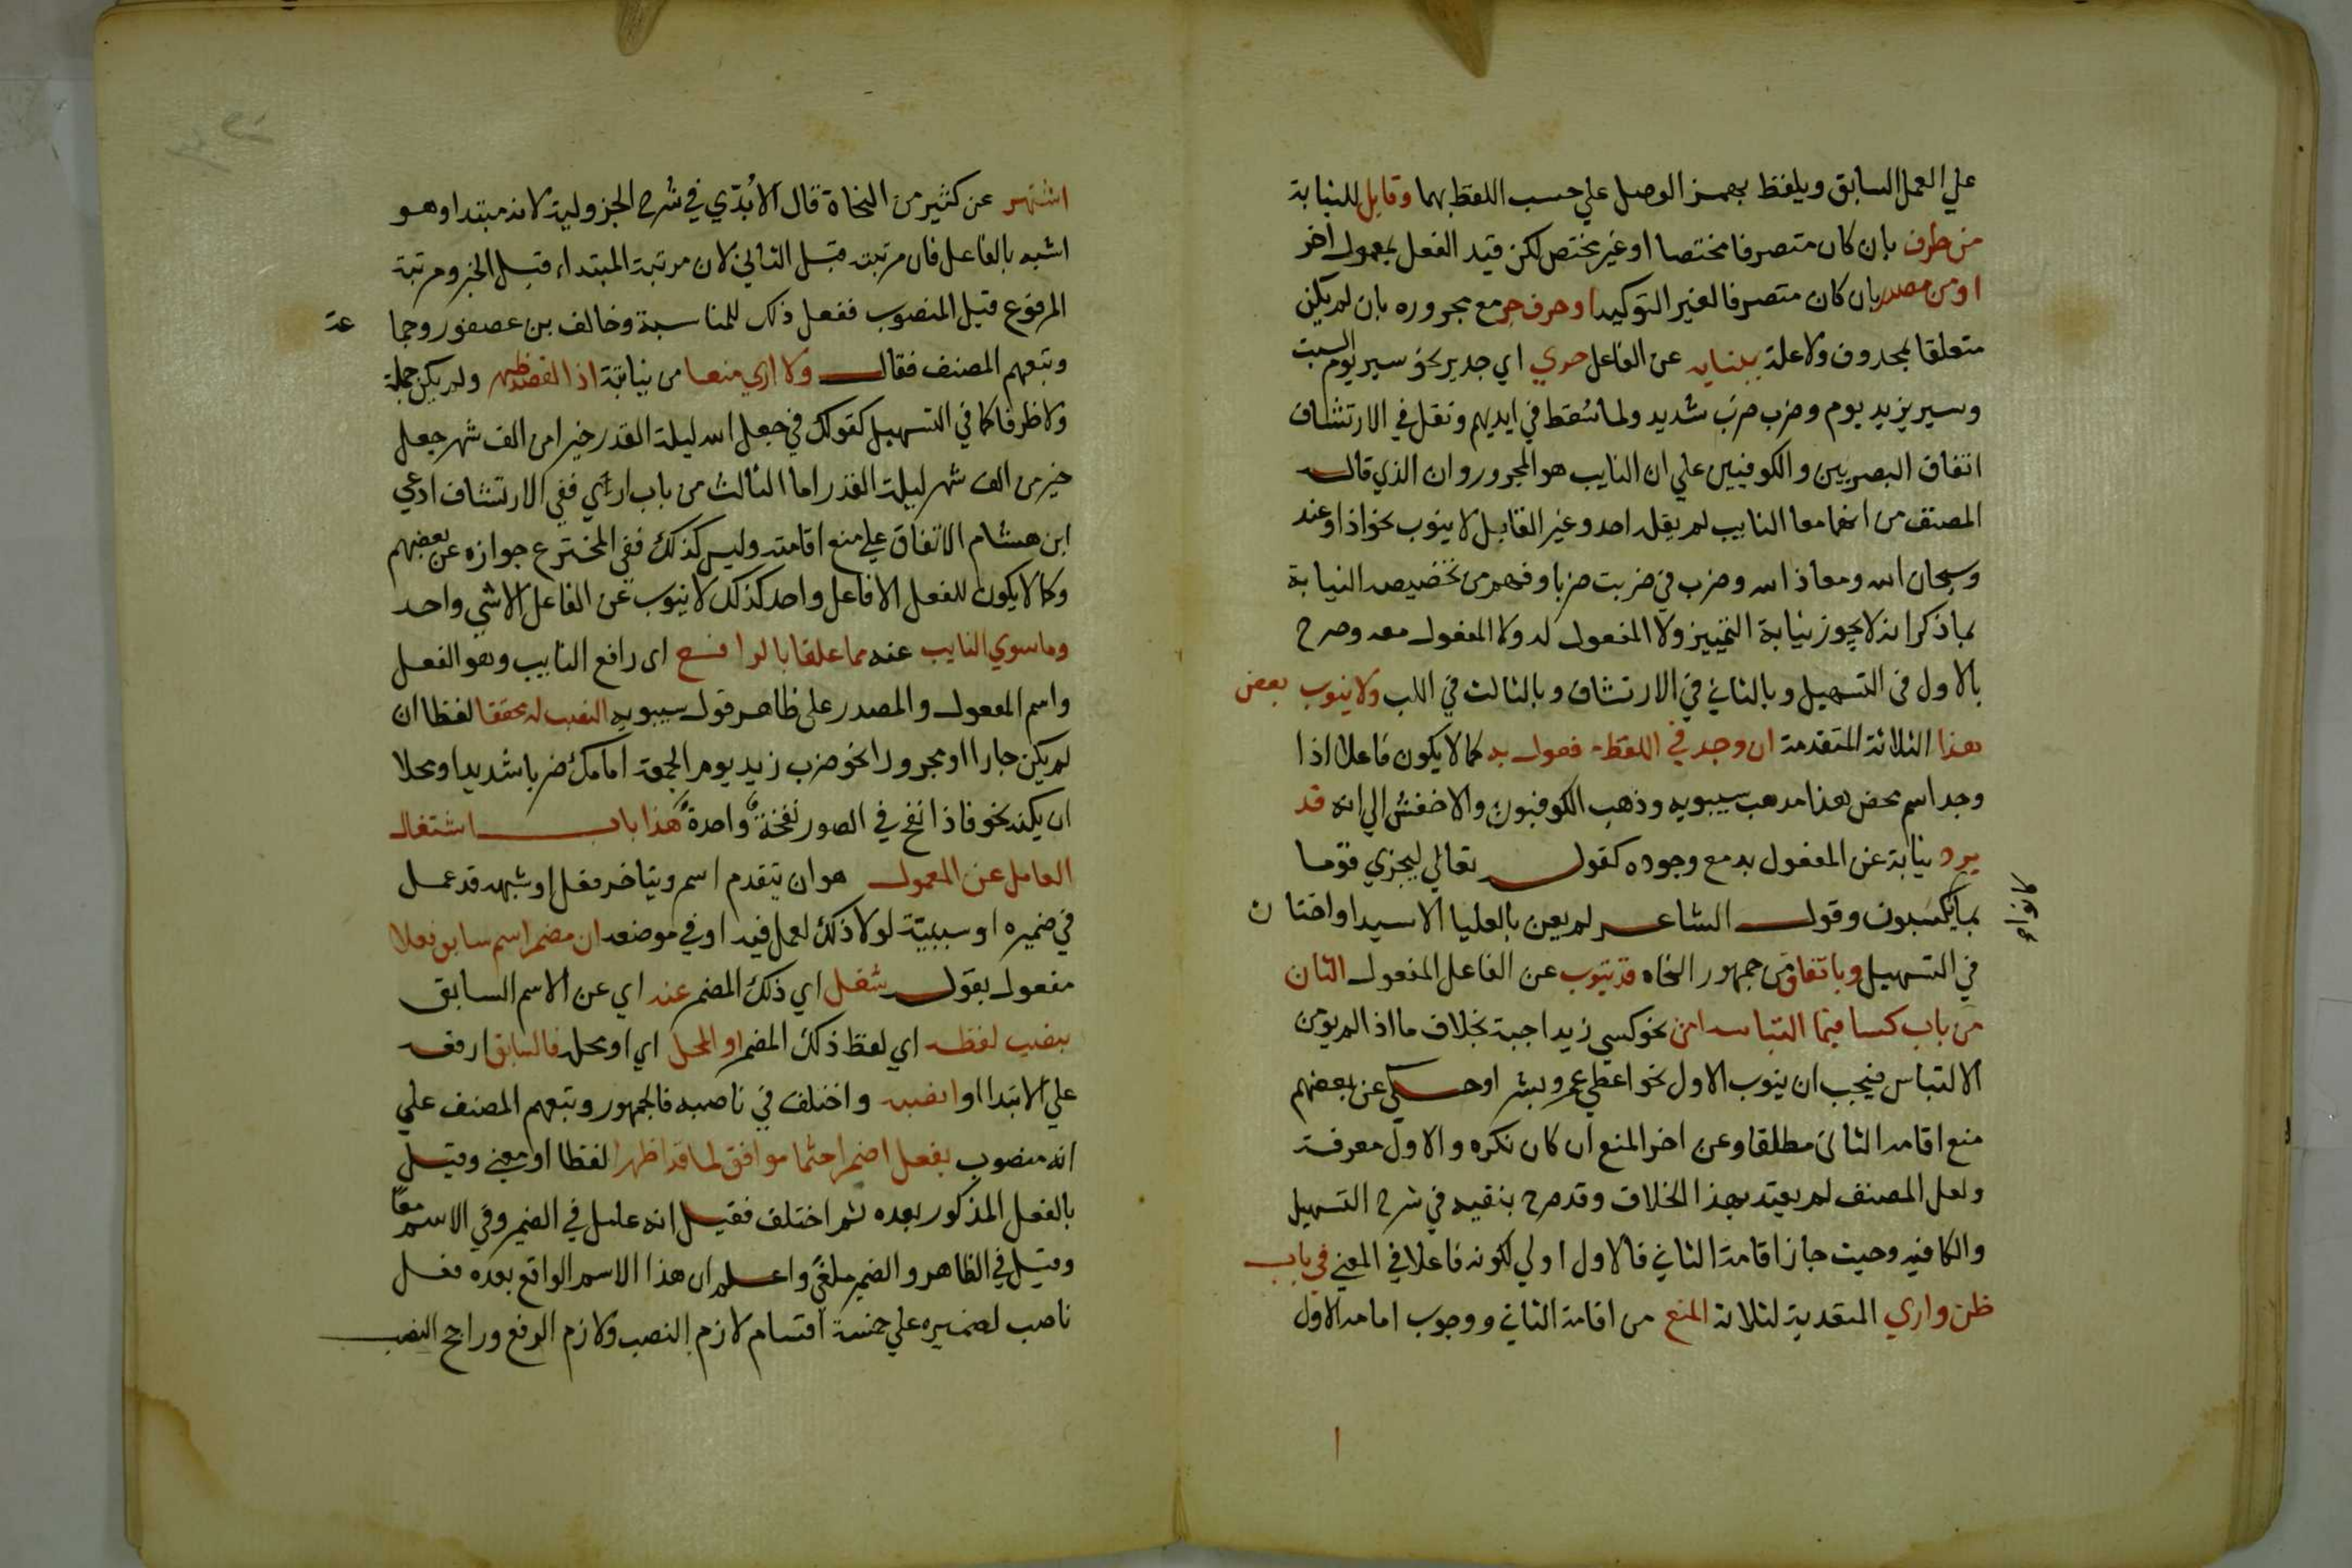 علي العمل السابق ويلفظ بهمز الوصل علي حسب اللفظ بهما وقابل للنيابة
من ظرف بان كان متصرفا مختصا او غير مختص لكن قيد الفعل بمعمول اخر
او من مصدر بان كان متصرفا لغير التوكيد او حرف جر مع مجروره بان لم يكن
متعلقا بمحذوف ولا علة بنيابه عن الفاعل حري اي جدير نحو سير يوم السبت
وسير بزيد يوم وضرب ضرب شديد ولما سقط في ايديهم ونقل في الارتشاف
اتفاق البصريين والكوفيين علي ان النايب هو المجرور وان الذي قاله
المصنف من انهما معا النايب لم يقله احد وغير القابل لا ينوب نحو اذا وعند
وسبحان الله ومعاذ الله وضرب في ضربت ضربا وفهم من تخصيصه النيابة
بما ذكر انه لا يجوز نيابة التمييز ولا المفعول له ولا المفعول معه وصرح
بالاول في التسهيل وبالثاني في الارتشاف وبالثالث في اللب ولا ينوب بعض
هذا الثلاثة المتقدمة ان وجد في اللفظ مفعول به كما لا يكون فاعلا اذا
وجد اسم محض هذا مذهب سيبويه وذهب الكوفيون والاخفش الي انه قد
يرد نيابة عن المفعول به مع وجوده كقوله تعالي ليجزي قوما
بما يكسبون وقول الشاعر لم يعن بالعليا الا سيدا واختار
كانوا
في التسهيل وباتفاق من جمهور النحاه قد ينوب عن الفاعل المفعول الثان
من باب كسا فيما التباسه امن نحو كسي زيدا جبة بخلاف ما اذا لم يومن
الالتباس فيجب ان ينوب الاول نحو اعطي عمرو بشرا وحكي عن بعضهم
منع اقامه الثاني مطلقا وعن اخر المنع ان كان نكره والاول معرفة
ولعل المصنف لم يعتد بهذا الخلاف وقد صرح بنفيه في شرح التسهيل
والكافيه وحيث جاز اقامة الثاني فالاول اولي لكونه فاعلا في المعني في باب
ظن واري المتعدية لثلاثة المنع من اقامة الثاني ووجوب اقامه الاول
اشتهر عن كثير من النحاة قال الابّدي في شرح الجزولية لانه مبتدا وهو
اشبه بالفاعل فان مرتبته قبل الثاني لان مرتبة المبتداء قبل الخبر ومرتبة
المرفوع قبل المنصوب ففعل ذلك للمناسبة وخالف بن عصفور وجما عة
وتبعهم المصنف فقال ولا اري منعا من نيابة اذا القصد ظهر ولم يكن جملة
ولا ظرفا كما في التسهيل كقولك في جعل الله ليلة القدر خيرا من الف شهر جعل
خير من الف شهر ليلة القدر اما الثالث من باب اري ففي الارتشاف ادعي
ابن هشام الاتفاق علي منع اقامته وليس كذلك ففي المخترع جوازه عن بعضهم
وكما لا يكون للفعل الا فاعل واحد كذلك لا ينوب عن الفاعل الا شي واحد
وما سوي النايب عنه مما علقا بالرافع اي رافع النايب وهو الفعل
واسم المفعول والمصدر علي ظاهر قول سيبويه النصب له محققا لفظا ان
لم يكن جارا او مجرورا نحو ضرب زيد يوم الجمعة امامك ضربا شديدا ومحلا
ان يكنه نحو فاذا نفخ في الصور نفخةٌ واحدةٌ هذا باب اشتغال
العامل عن المعمول هو ان يتقدم اسم ويتاخر فعل او شبهه قد عمل
في ضميره او سببيّه لولا ذلك لعمل فيه او في موضعه ان مضمر اسم سابق فعلا
مفعول بقوله شغل اي ذلك المضمر عنه اي عن الاسم السابق
بنصب لفظه اي لفظ ذلك المضمر او المحل اي او محله فالسابق ارفعه
علي الابتدا او انصبه واختلف في ناصبه فالجمهور وتبعهم المصنف علي
انه منصوب بفعل اضمرا حتما موافق لما قد اظهرا لفظا او معني وقيل
بالفعل المذكور بعده ثم اختلف فقيل انه عامل في الضمير وفي الاسم معا
وقيل في الظاهر والضمير ملغي واعلم ان هذا الاسم الواقع بعده فعل
ناصب لضميره علي خمسة اقسام لازم النصب ولازم الرفع وراجح النصب